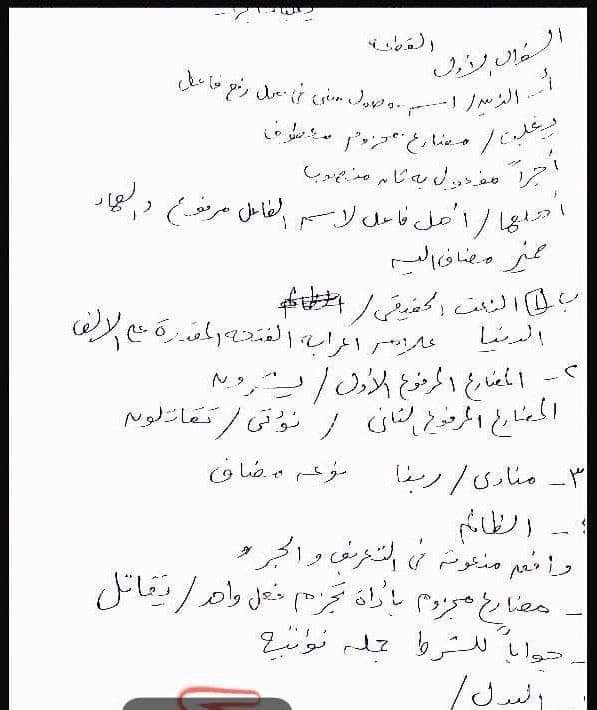 السؤال الأول القطعة
أ ـ الذين / اسم موصول مبني في محل رفع فاعل
يغلب / مضارع مجزوم معطوف
أجراً مفعول به ثان منصوب
أهلها / أهل فاعل لاسم الفاعل مرفوع والهاء
ضمير مضاف اليه
ب ـ ① النعت الحقيقي /
الدنيا علامه اعرابه الفتحه المقدرة على الالف
٢ ـ المضارع المرفوع الأول / يشرون
المضارع المرفوع الثاني / نؤتي / تقاتلون
٣ ـ منادى / ربنا نوعه مضاف
٤ ـ الظالم
وافق منعوته في التعريف والجر
ـ مضارع مجزوم بأداة تجزم فعل واحد / يقاتل
ـ جواباً للشرط جملة نؤتيه
البدل /